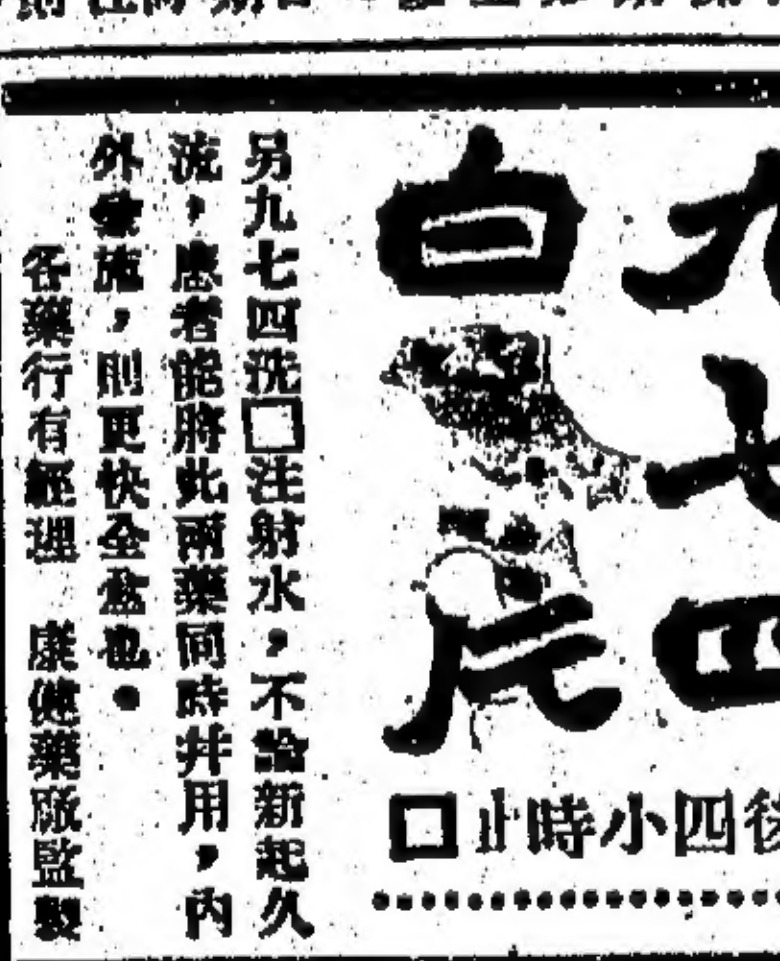 九七四
白
後四小時止□
另九七四洗□注射水，不論新起久
流，患者能將此兩藥同時并用，內
外施，則更快全愈也。
各藥行有經理　康健藥廠監製